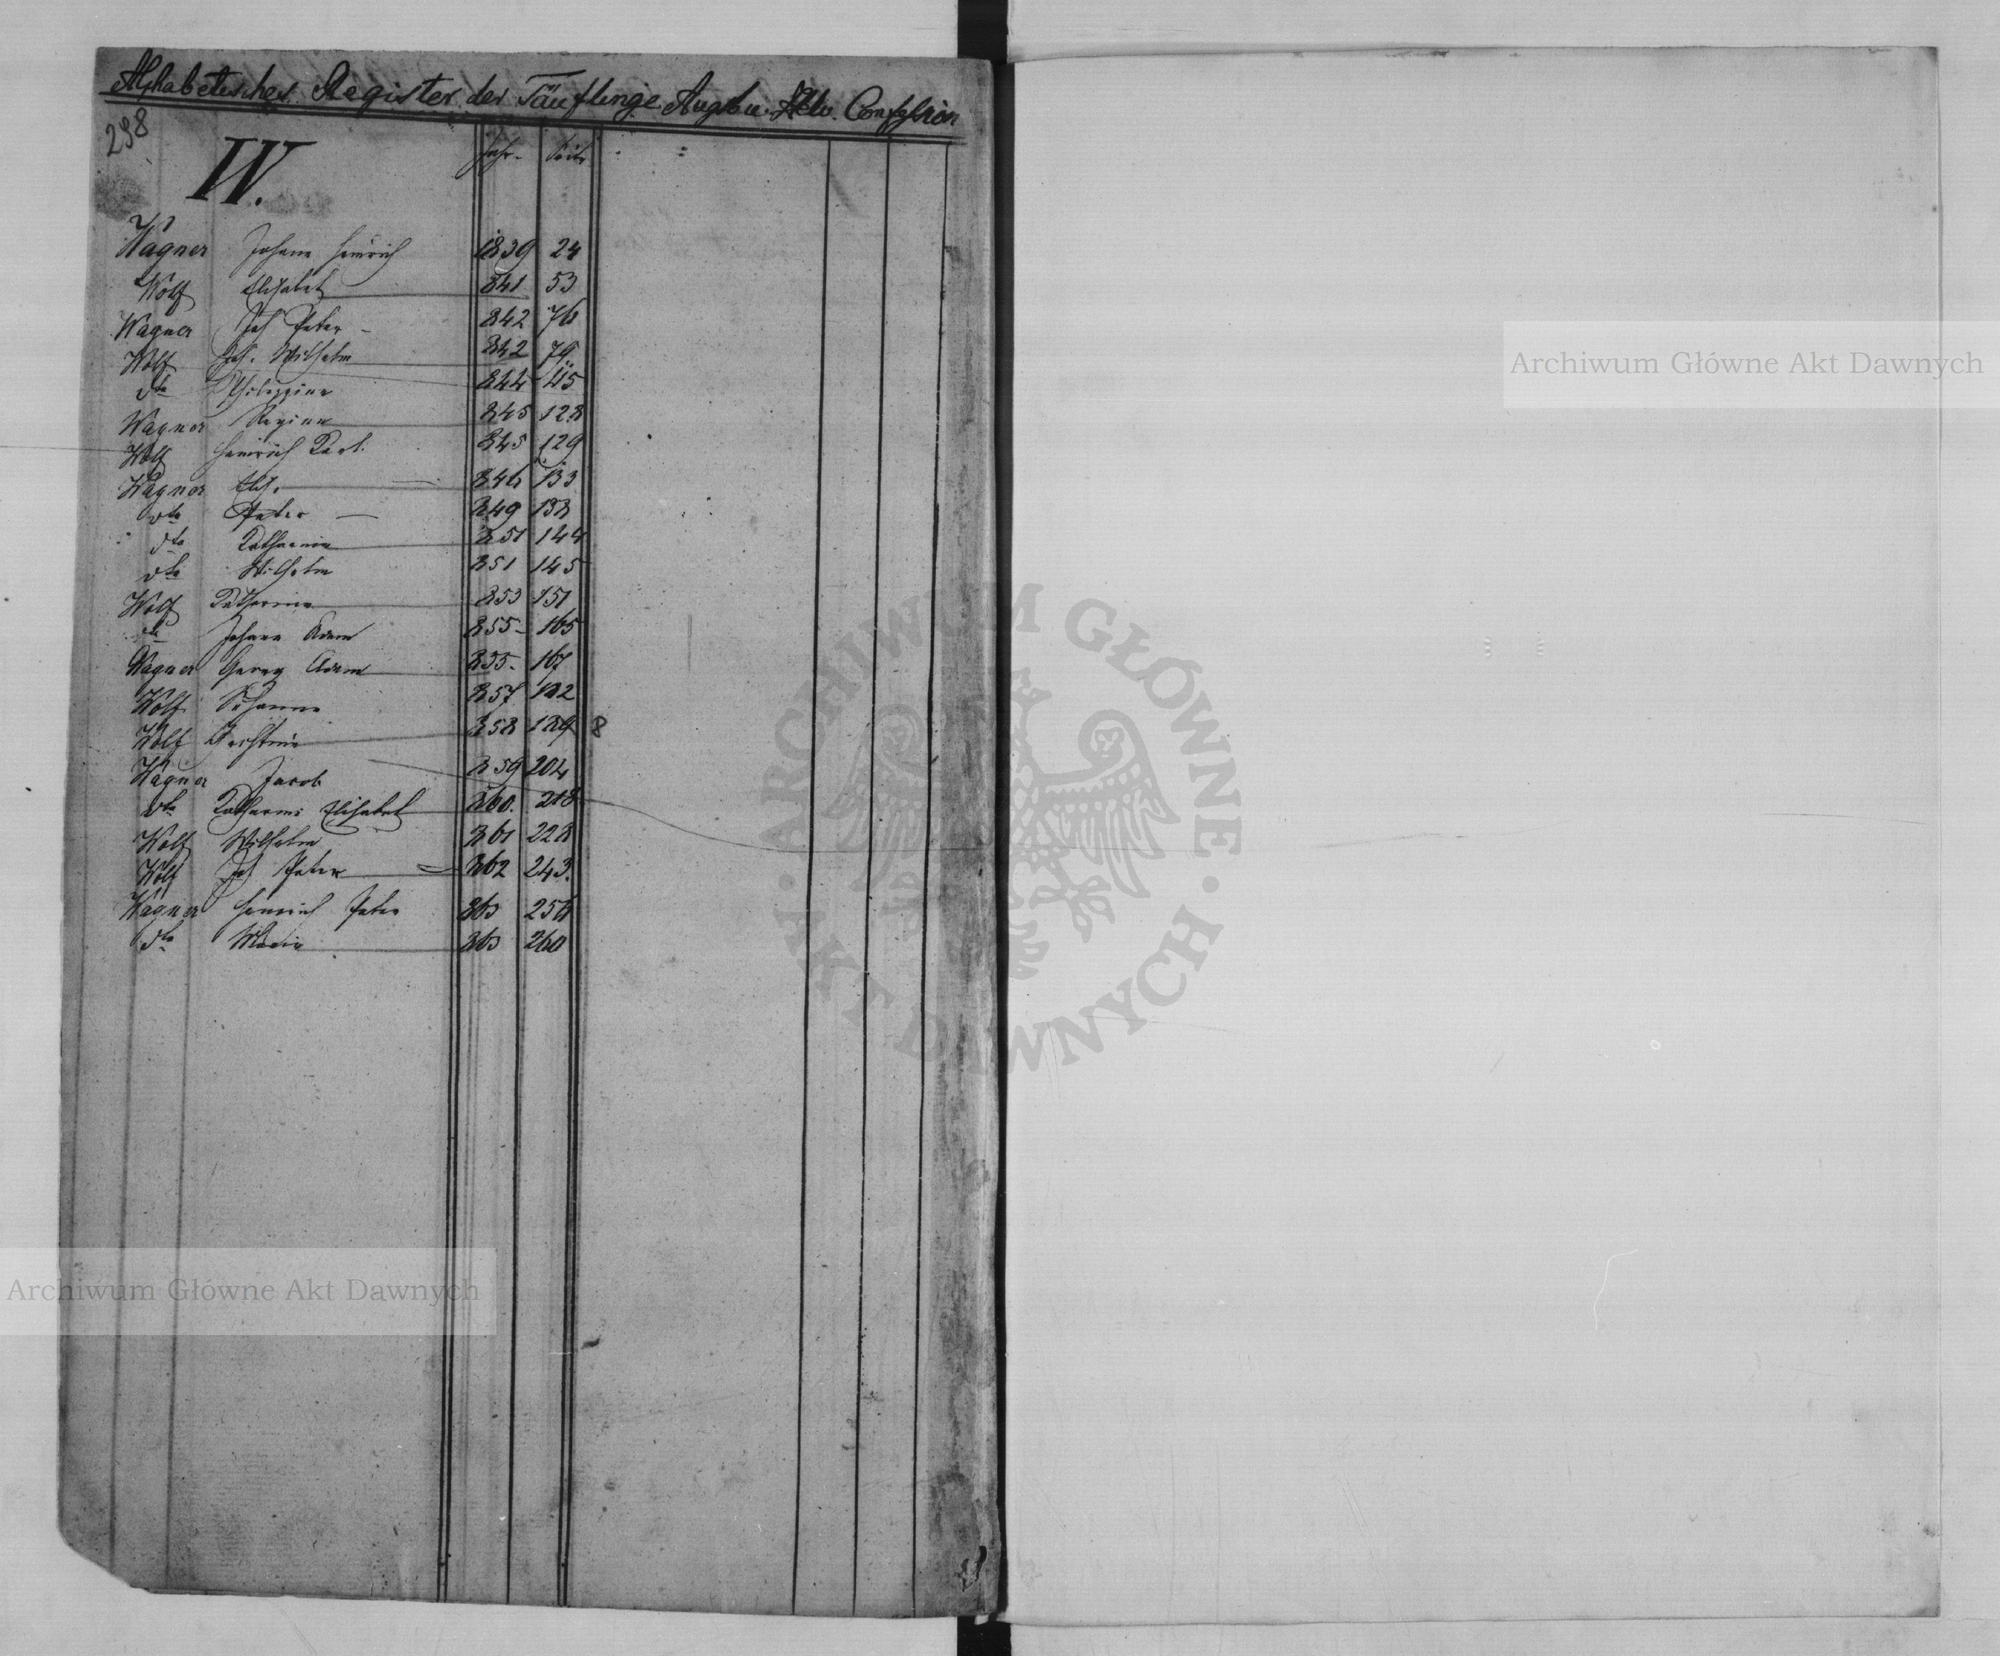 Alphabetisches Register der Täuflinge Augsb u. Helv. Confession
298
W.
Jahr. Seite
Wagner Johann Heinrich 1839 24
Wolf Elisabet 841 53
Wagner Joh Peter 842 76
Wolf Joh. Wilhelm 842 79
dto Philippine 844 115
Wagner Regina 845 128
Wolf Heinrich Karl. 845 129
Wagner Elis. 846 133
dto Peter 849 138
dto Katharina 851 144
dto Wilhelm 851 145
Wolf Katharina 853 151
dto Johann Adam 855 165
Wagner Georg Adam 855. 167
Wolf Susanna 857 182
Wolf 858 189 8
Wagner Jacob 859 204
dto Katharina Elisabet 860. 218
Wolf Wilhelm 861 228
Wolf Joh Peter 862 243.
Wagner Heinrich Peter 863 256
dto Maria 863 260
Archiwum Główne Akt Dawnych
Archiwum Główne Akt Dawnych
ARCHIWUM GŁÓWNE · AKT DAWNYCH ·